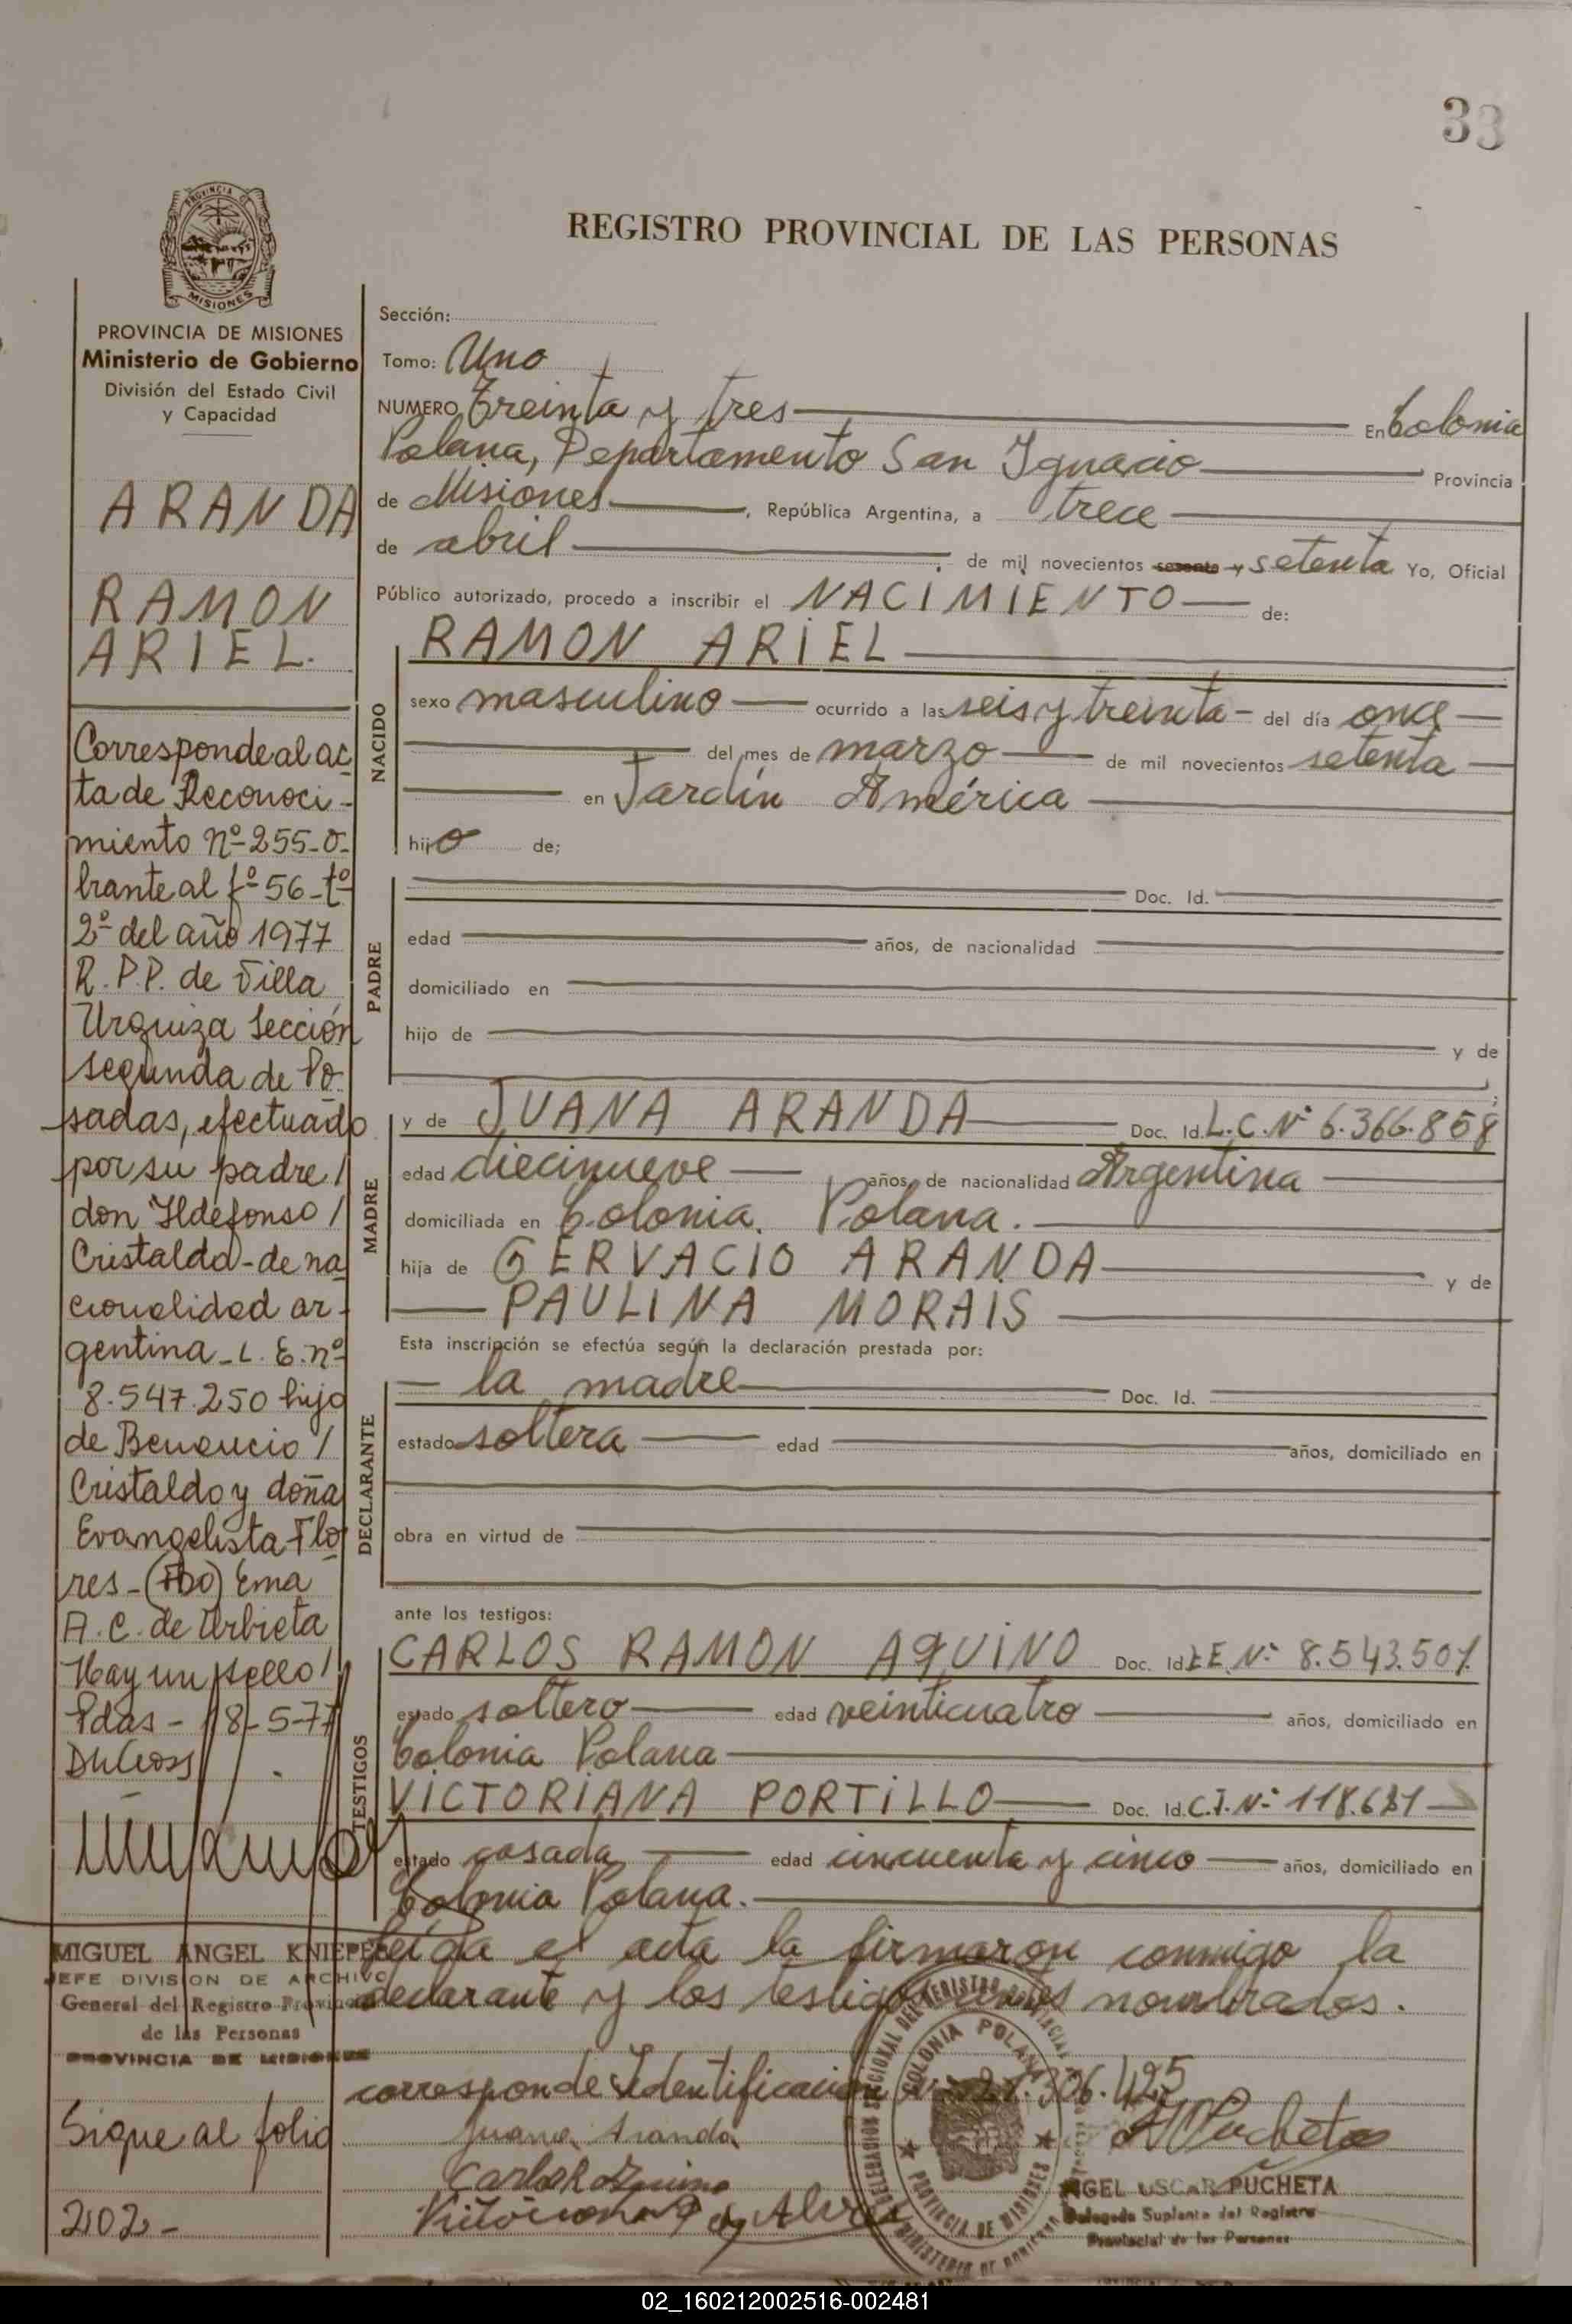 33
PROVINCIA DE MISIONES
REGISTRO PROVINCIAL DE LAS PERSONAS
PROVINCIA DE MISIONES
Ministerio de Gobierno
División del Estado Civil
y Capacidad
ARANDA
RAMON
ARIEL.
Corresponde al ac
ta de Reconoci-
miento Nº 255-o-
brante al fº 56-tº
2º del año 1977
R.P.P. de Villa
Urquiza Sección
segunda de Po
sadas, efectuado
por su padre/
don Ildefonso/
Cristaldo-de na
cionalidad ar-
gentina-L.E.nº
8.547.250 hijo
de Benancio/
Cristaldo y doña
Evangelista Flo
res-(FDO) Ema
A.C. de Urbieta
Hay un sello/
Pdas-18-5-77
MIGUEL ANGEL
JEFE DIVISION DE ARCHIVO
General del Registro Provincial
de las Personas
PROVINCIA DE MISIONES
Sigue al folio
202-
Sección:
Tomo: Uno
NUMERO Treinta y tres En Colonia
Polana, Departamento San Ignacio Provincia
de Misiones, República Argentina, a trece
de abril de mil novecientos sesenta y setenta Yo, Oficial
Público autorizado, procedo a inscribir el NACIMIENTO de:
NACIDO
RAMON ARIEL
sexo masculino ocurrido a las seis y treinta del día once
del mes de marzo de mil novecientos setenta
en Jardín América
hijo de;
PADRE
Doc. Id.
edad años, de nacionalidad
domiciliado en
hijo de y de
;
MADRE
y de JUANA ARANDA Doc. Id. L.C.Nº 6.366.858
edad diecinueve años, de nacionalidad Argentina
domiciliada en Colonia Polana.
hija de GERVACIO ARANDA y de
PAULINA MORAIS
Esta inscripción se efectúa según la declaración prestada por:
DECLARANTE
la madre Doc. Id.
estado soltera edad años, domiciliado en
obra en virtud de
ante los testigos:
TESTIGOS
CARLOS RAMON AQUINO Doc. Id. L.E. Nº 8.543.501.
estado soltero edad veinticuatro años, domiciliado en
Colonia Polana
VICTORIANA PORTILLO Doc. Id. C.I. Nº
estado casada edad cincuenta y cinco años, domiciliado en
Colonia Polana.
Leída el acta la firmaron conmigo la
declarante y los testigos nombrados.
corresponde Identificación 306.425
Juana Aranda
COLONIA POLANA
PROVINCIA DE MISIONES
ANGEL OSCAR PUCHETA
Delegado Suplente del Registro
Provincial de las Personas
02_160212002516-002481